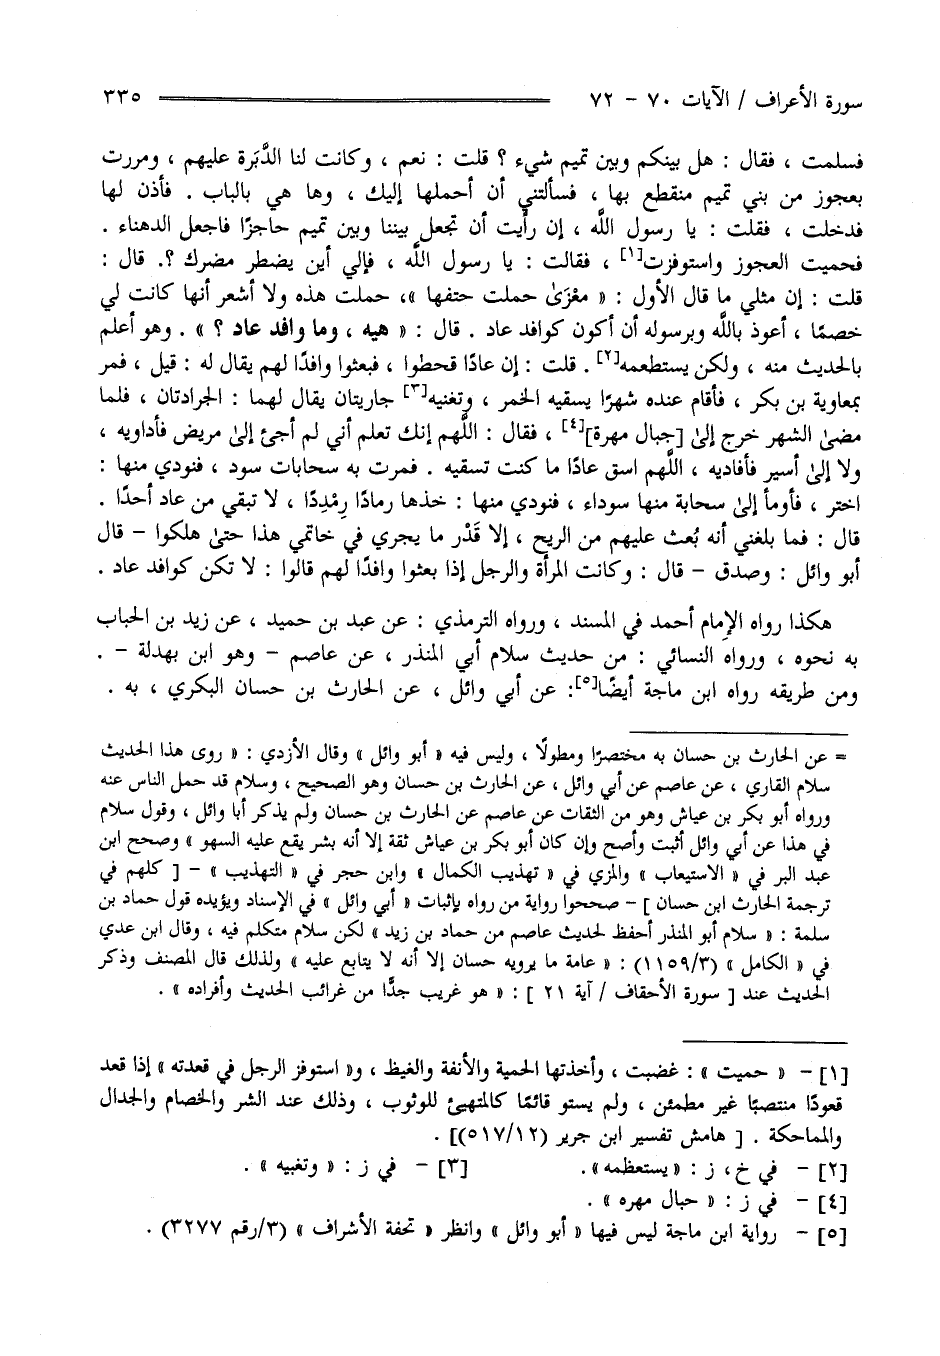 سورة الأعراف / الآيات ٧٠ - ٧٢ ٣٣٥
فسلمت ، فقال : هل بينكم وبين تميم شيء ؟ قلت : نعم ، وكانت لنا الدَّبَرة عليهم ، ومررت
بعجوز من بني تميم منقطع بها ، فسألتني أن أحملها إليك ، وها هي بالباب . فأذن لها
فدخلت ، فقلت : يا رسول اللَّه ، إن رأيت أن تجعل بيننا وبين تميم حاجزًا فاجعل الدهناء .
فحميت العجوز واستوفزت[١] ، فقالت : يا رسول اللَّه ، فإلي أين يضطر مضرك ؟. قال :
قلت : إن مثلي ما قال الأول : « مغزَىٰ حملت حتفها »، حملت هذه ولا أشعر أنها كانت لي
خصمًا ، أعوذ باللَّه وبرسوله أن أكون كوافد عاد . قال : « هيه ، وما وافد عاد ؟ » . وهو أعلم
بالحديث منه ، ولكن يستطعمه[٢] . قلت : إن عادًا قحطوا ، فبعثوا وافدًا لهم يقال له : قيل ، فمر
بمعاوية بن بكر ، فأقام عنده شهرًا يسقيه الخمر ، وتغنيه[٣] جاريتان يقال لهما : الجرادتان ، فلما
مضىٰ الشهر خرج إلىٰ [جبال مهرة][٤] ، فقال : اللَّهم إنك تعلم أني لم أجئ إلىٰ مريض فأداويه ،
ولا إلىٰ أسير فأفاديه ، اللَّهم اسق عادًا ما كنت تسقيه . فمرت به سحابات سود ، فنودي منها :
اختر ، فأومأ إلىٰ سحابة منها سوداء ، فنودي منها : خذها رمادًا رِمْدِدًا ، لا تبقي من عاد أحدًا .
قال : فما بلغني أنه بُعث عليهم من الريح ، إلا قَدْر ما يجري في خاتمي هذا حتىٰ هلكوا - قال
أبو وائل : وصدق - قال : وكانت المرأة والرجل إذا بعثوا وافدًا لهم قالوا : لا تكن كوافد عاد .
هكذا رواه الإمام أحمد في المسند ، ورواه الترمذي : عن عبد بن حميد ، عن زيد بن الحباب
به نحوه ، ورواه النسائي : من حديث سلام أبي المنذر ، عن عاصم - وهو ابن بهدلة - .
ومن طريقه رواه ابن ماجة أيضًا[٥]: عن أبي وائل ، عن الحارث بن حسان البكري ، به .
= عن الحارث بن حسان به مختصرًا ومطولًا ، وليس فيه « أبو وائل » وقال الأزدي : « روى هذا الحديث
سلام القاري ، عن عاصم عن أبي وائل ، عن الحارث بن حسان وهو الصحيح ، وسلام قد حمل الناس عنه
ورواه أبو بكر بن عياش وهو من الثقات عن عاصم عن الحارث بن حسان ولم يذكر أبا وائل ، وقول سلام
في هذا عن أبي وائل أثبت وأصح وإن كان أبو بكر بن عياش ثقة إلا أنه بشر يقع عليه السهو » وصحح ابن
عبد البر في « الاستيعاب » والمزي في « تهذيب الكمال » وابن حجر في « التهذيب » - [ كلهم في
ترجمة الحارث ابن حسان ] - صححوا رواية من رواه بإثبات « أبي وائل » في الإسناد ويؤيده قول حماد بن
سلمة : « سلام أبو المنذر أحفظ لحديث عاصم من حماد بن زيد » لكن سلام متكلم فيه ، وقال ابن عدي
في « الكامل » (٣/١١٥٩) : « عامة ما يرويه حسان إلا أنه لا يتابع عليه » ولذلك قال المصنف وذكر
الحديث عند [ سورة الأحقاف / آية ٢١ ] : « هو غريب جدًّا من غرائب الحديث وأفراده » .
[١] - « حميت » : غضبت ، وأخذتها الحمية والأنفة والغيظ ، و« استوفز الرجل في قعدته » إذا قعد
قعودًا منتصبًا غير مطمئن ، ولم يستو قائمًا كالمتهيئ للوثوب ، وذلك عند الشر والخصام والجدال
والمماحكة . [ هامش تفسير ابن جرير (١٢/٥١٧)] .
[٢] - في خ، ز : « يستعظمه». [٣] - في ز : « وتغبيه » .
[٤] - في ز : « حبال مهره » .
[٥] - رواية ابن ماجة ليس فيها « أبو وائل » وانظر « تحفة الأشراف » (٣/رقم ٣٢٧٧) .